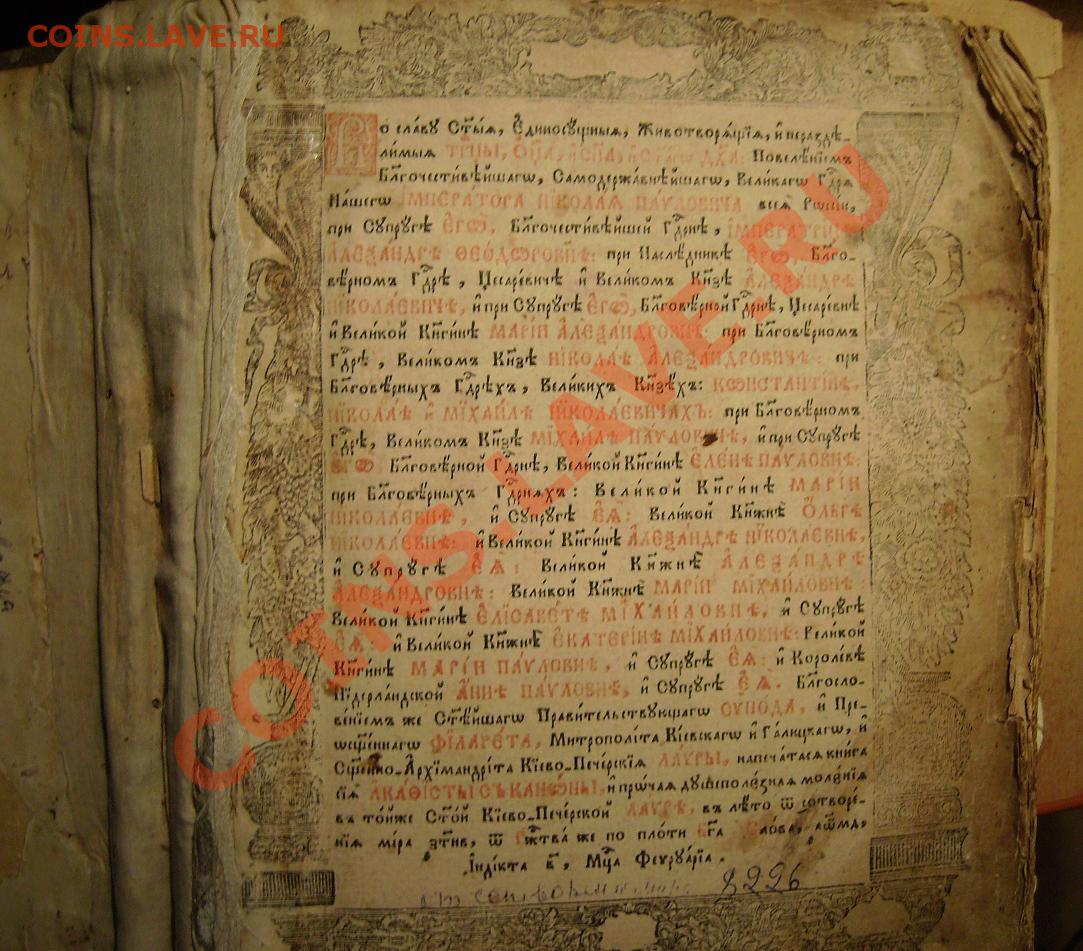 COINS.LAVE.RU
Во сла́ву Ст҃ы́ѧ, Є҆диносꙋ́щныѧ, Животворѧ́щїѧ, и҆ неразде-
ли́мыѧ ТРⷪ҇ЦЫ, Ѻ҆Ц҃А̀, и҆ СН҃А, и҆ СТ҃А́ГѠ ДХ҃А: Повеле́нїемъ
Бл҃гочести́вѣйшагѡ, Самодержа́внѣйшагѡ, Вели́кагѡ Гдⷭ҇рѧ
На́шегѡ И҆МПЕРА́ТОРА НІКОЛА́Ѧ ПА́ѴЛОВИЧА всеѧ̀ Рѡссі́и,
при Сꙋпрꙋ́гѣ Є҆ГѠ̀, Бл҃гочести́вѣйшей Гдⷭ҇рнѣ, И҆МПЕРАТРИ́ЦѢ
А҆ЛЕѮА́НДРѢ ѲЕО́ДѠРОВНѢ: при Наслѣ́дникѣ Є҆ГѠ̀, Благо-
вѣ́рномъ Гдⷭ҇рѣ, Цесаре́вичѣ и҆ Вели́комъ Кн҃зѣ А҆ЛЕѮА́НДРѢ
НІКОЛА́ЕВИЧѢ, и҆ при Сꙋпрꙋ́гѣ Є҆ГѠ̀, Бл҃говѣ́рной Гдⷭ҇рнѣ, Цесаре́внѣ
и҆ Вели́кой Кн҃ги́нѣ МАРІ́И А҆ЛЕѮА́НДРОВНѢ: при Бл҃говѣ́рномъ
Гдⷭ҇рѣ, Вели́комъ Кн҃зѣ НІКОЛА́Ѣ А҆ЛЕѮА́НДРОВИЧѢ: при
Бл҃говѣ́рныхъ Гдⷭ҇рѣхъ, Вели́кихъ Кн҃зѣ́хъ: КѠНСТАНТІ́НѢ,
НІКОЛА́Ѣ и҆ МІХАИ́ЛѢ НІКОЛА́ЕВИЧАХЪ: при Бл҃говѣ́рномъ
Гдⷭ҇рѣ, Вели́комъ Кн҃зѣ МІХАИ́ЛѢ ПА́ѴЛОВИЧѢ, и҆ при Сꙋпрꙋ́гѣ
Є҆ГѠ̀ Бл҃говѣ́рной Гдⷭ҇рнѣ, Вели́кой Кн҃ги́нѣ Є҆ЛЕ́НѢ ПА́ѴЛОВНѢ:
при Бл҃говѣ́рныхъ Гдⷭ҇рнѧхъ: Вели́кой Кн҃ги́нѣ МАРІ́И
НІКОЛА́ЕВНѢ, и҆ Сꙋпрꙋ́гѣ Є҆Ѧ̀: Вели́кой Кн҃жнѣ̀ Ѻ҆́ЛЬГѢ
НІКОЛА́ЕВНѢ: и҆ Вели́кой Кн҃ги́нѣ А҆ЛЕѮА́НДРѢ НІКОЛА́ЕВНѢ,
и҆ Сꙋпрꙋ́гѣ Є҆Ѧ̀: Вели́кой Кн҃жнѣ̀ А҆ЛЕѮА́НДРѢ
А҆ЛЕѮА́НДРОВНѢ: Вели́кой Кн҃жнѣ̀ МАРІ́И МІХА́ЙЛОВНѢ:
Вели́кой Кн҃ги́нѣ Є҆ЛІСАВЕ́ТѢ МІХА́ЙЛОВНѢ, и҆ Сꙋпрꙋ́гѣ
Є҆Ѧ̀: и҆ Вели́кой Кн҃жнѣ̀ Є҆КАТЕРІ́НѢ МІХА́ЙЛОВНѢ: Вели́кой
Кн҃ги́нѣ МАРІ́И ПА́ѴЛОВНѢ, и҆ Сꙋпрꙋ́гѣ Є҆Ѧ̀: и҆ Короле́вѣ
Нідерла́ндской А҆́ННѢ ПА́ѴЛОВНѢ, и҆ Сꙋпрꙋ́гѣ Є҆Ѧ̀. Благосло-
ве́нїемъ же Ст҃ѣ́йшагѡ Прави́тельствꙋющагѡ СѴНО́ДА, и҆ Пре-
ѡсщ҃е́ннагѡ ФІЛАРЕ́ТА, Митрополі́та Кі́евскагѡ и҆ Га́лицкагѡ, и҆
Сщ҃е́нно-А҆рхїмандрі́та Кі́ево-Пече́рскїѧ ЛА́ѴРЫ, напеча́тасѧ кни́га
сїѧ̀ А҆КА́ѲІСТЫ СЪ КАНѠ́НЫ, и҆ прѡ́чаѧ дꙋшеполє́знаѧ молє́нїѧ
въ то́йже Ст҃о́й Кі́ево-Пече́рской ЛА́ѴРѢ, въ лѣ́то ѿ сотворе́-
нїѧ мі́ра ҂зтнв, ѿ РЖⷭ҇ТВА́ же по пло́ти Бг҃а Сло́ва, ҂аѡмд,
І҆ндї́кта в҃, Мц҃а Феврꙋа́рїа.
от сотворения мира 8226
COINS.LAVE.RU